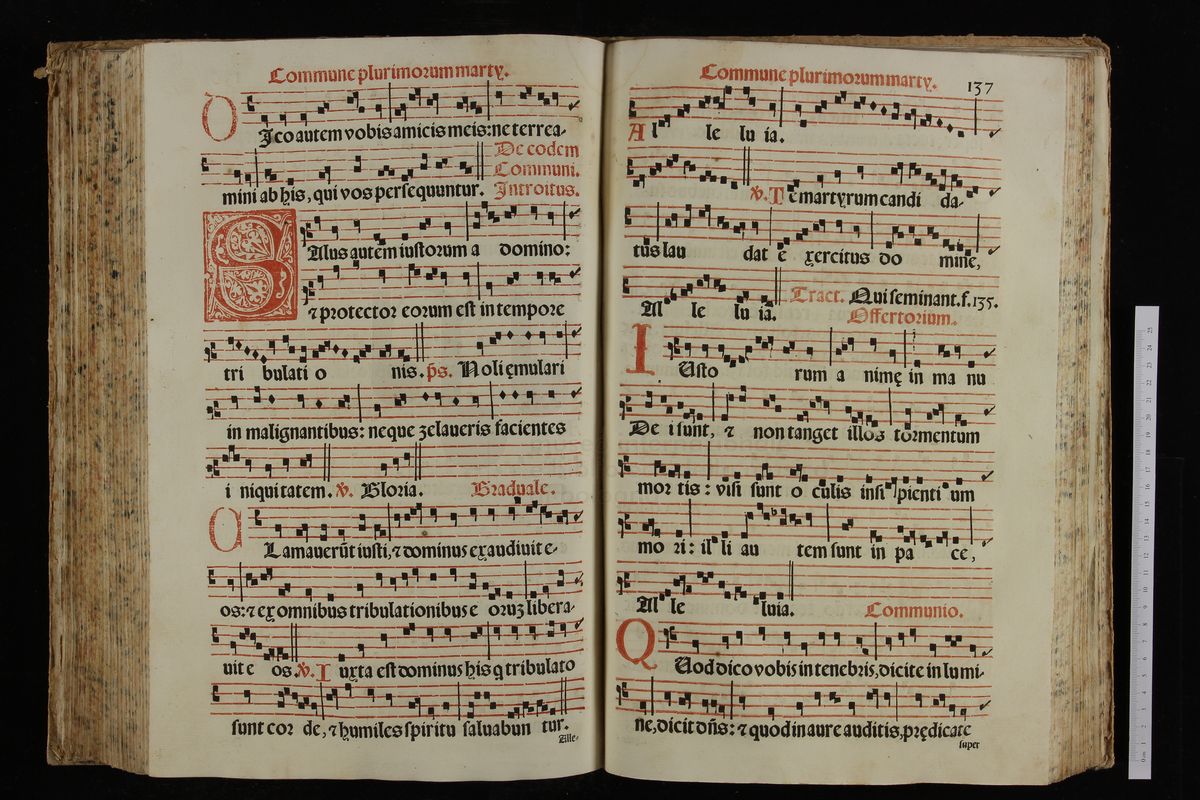 Commune plurimorum marty.
D Ico autem vobis amicis meis: ne terrea-
De eodem
Communi.
mini ab his, qui vos persequuntur. Introitus.
S Alus autem iustorum a domino:
⁊ protector eorum est in tempore
tri bulati o nis. ps. Noli ęmulari
in malignantibus: neque zelaueris facientes
i niquitatem. ℣. Gloria. Graduale.
C Lamauerūt iusti, ⁊ dominus exaudiuit e-
os: ⁊ ex omnibus tribulationibus e oruꝫ libera-
uit e os. ℣. I uxta est dominus his q tribulato
sunt cor de, ⁊ humiles spiritu saluabun tur.
Alle-
Commune plurimorum marty. 137
A l le lu ia.
℣. T e martyrum candi da-
tus lau dat e xercitus do mine,
Al le lu ia. Tract. Qui seminant. f. 135.
Offertorium.
I Usto rum a nimę in ma nu
De i sunt, ⁊ non tanget illos tormentum
mor tis: visi sunt o culis insi pienti um
mo ri: il li au tem sunt in pa ce,
Al le luia. Communio.
Q Uod dico vobis in tenebris, dicite in lumi-
ne, dicit dn̄s: ⁊ quod in aure auditis, prędicate
super